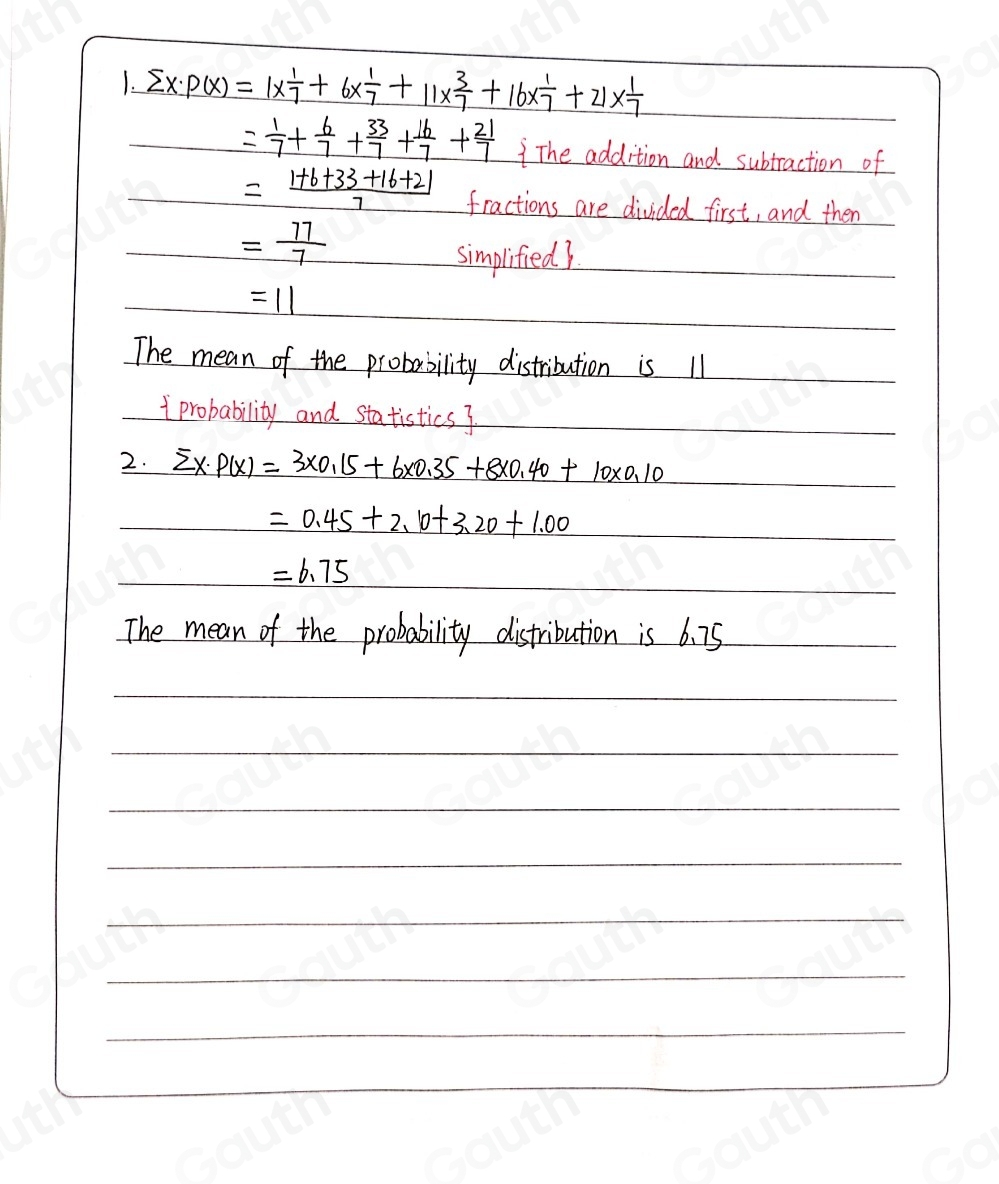 1. Σx·P(x) = 1×1/7 + 6×1/7 + 11×3/7 + 16×1/7 + 21×1/7
= 1/7 + 6/7 + 33/7 + 16/7 + 21/7 {The addition and subtraction of
= (1+6+33+16+21)/7 fractions are divided first, and then
= 77/7 simplified}.
= 11
The mean of the probability distribution is 11
{probability and statistics}.
2. Σx·P(x) = 3×0.15 + 6×0.35 + 8×0.40 + 10×0.10
= 0.45 + 2.10 + 3.20 + 1.00
= 6.75
The mean of the probability distribution is 6.75